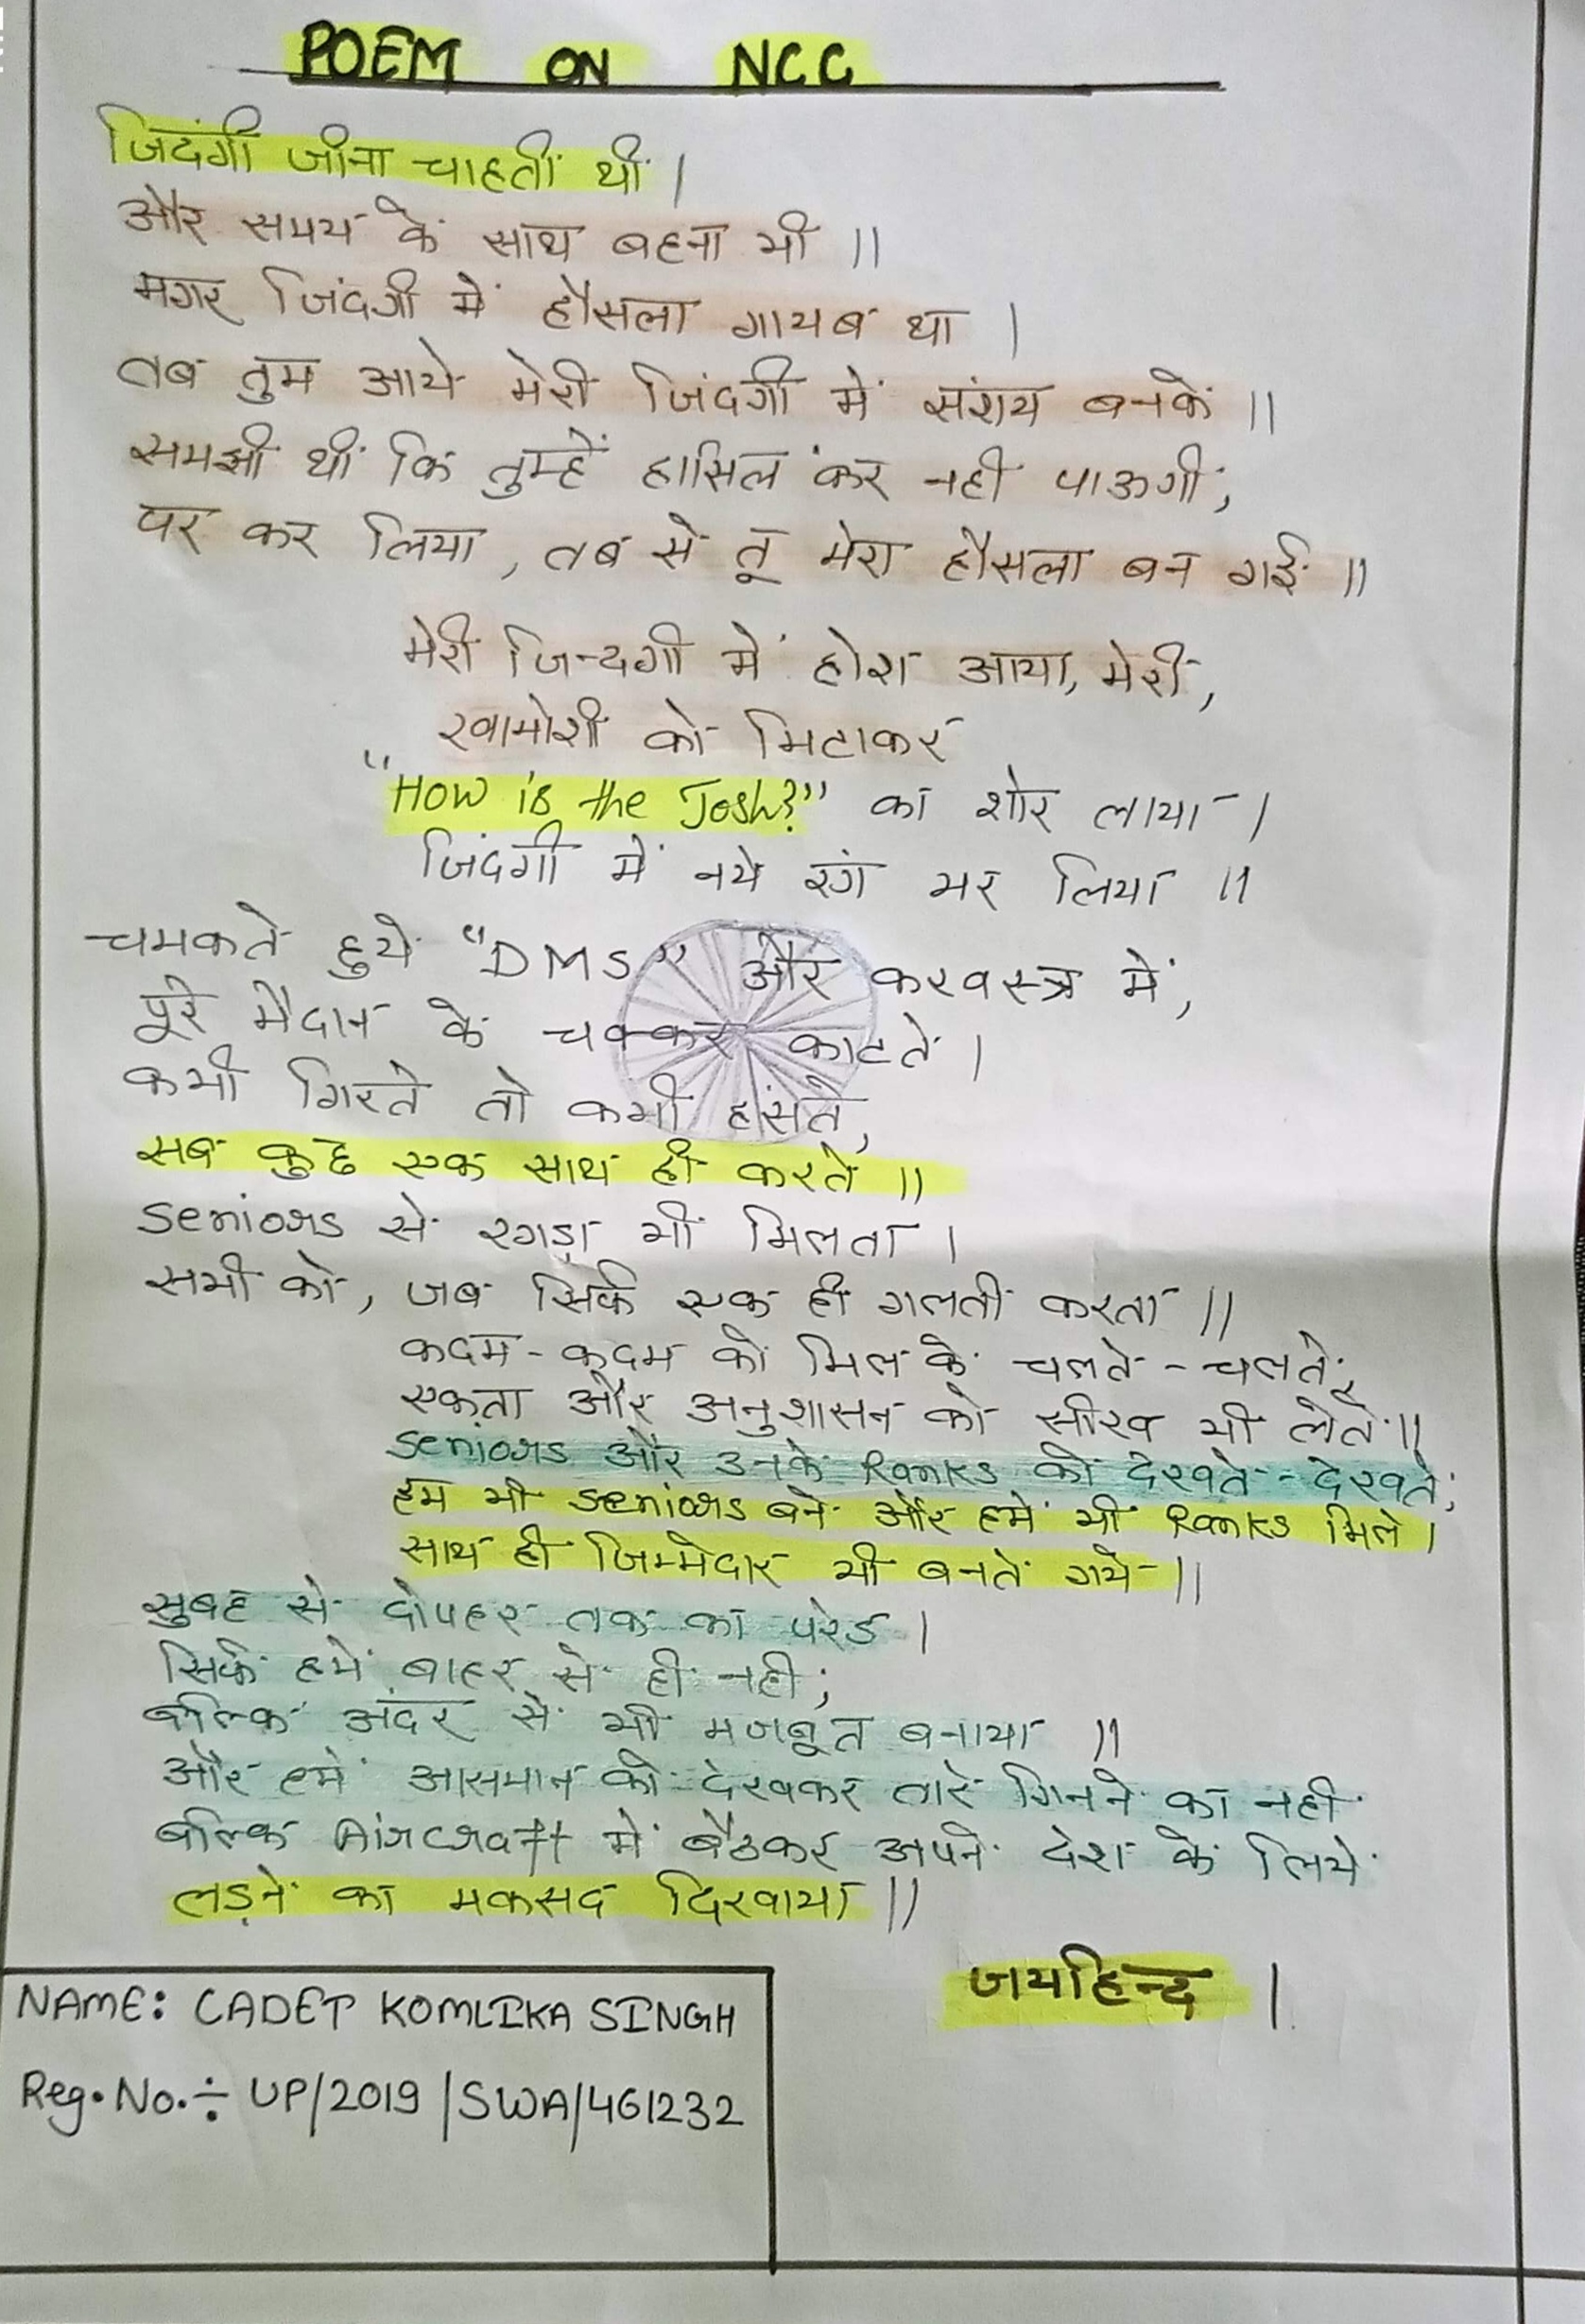 POEM ON NCC
जिदंगी जीना चाहती थी।
और समय के साथ बहना भी॥
मगर जिंदगी में हौसला गायब था।
तब तुम आये मेरी जिंदगी में संशय बनके॥
समझी थी कि तुम्हें हासिल कर नही पाऊगी,
पर कर लिया, तब से तू मेरा हौसला बन गई॥
मेरी जिन्दगी में होश आया, मेरी,
खामोशी को मिटाकर
"How is the Josh?" का शोर लाया।
जिंदगी में नये रंग भर लिया॥
चमकते हुये "DMS" और करवस्त्र में,
पूरे मैदान के चक्कर काटते।
कभी गिरते तो कभी हंसते,
सब कुछ एक साथ ही करते॥
seniors से रगड़ा भी मिलता।
सभी को, जब सिर्फ एक ही गलती करता॥
कदम-कदम को मिल के चलते-चलते,
एकता और अनुशासन को सीख भी लेते॥
seniors और उनके Ranks को देखते-देखते,
हम भी seniors बने और हमें भी Ranks मिले।
साथ ही जिम्मेदार भी बनते गये॥
सुबह से दोपहर तक का परेड।
सिर्फ हमें बाहर से ही नही,
बल्कि अंदर से भी मजबूत बनाया॥
और हमें आसमान को देखकर तारे गिनने का नही
बल्कि Aircraft में बैठकर अपने देश के लिये
लड़ने का मकसद दिखाया॥
जयहिन्द।
NAME: CADET KOMLIKA SINGH
Reg. No.÷ UP/2019/SWA/461232